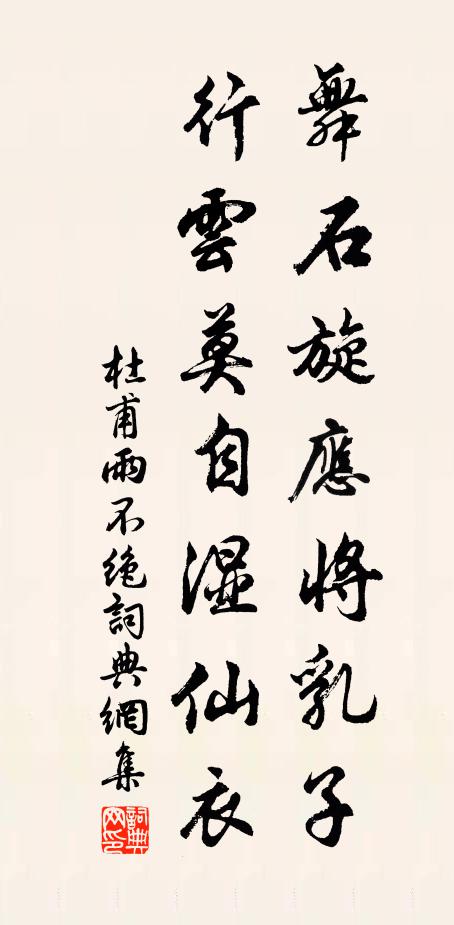 舞石旋應將乳子
行雲莫自濕仙衣
杜甫雨不絶詞典網集
詞典网印